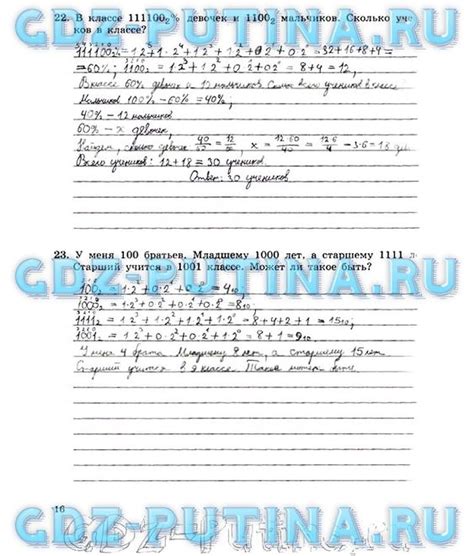 22. В классе 111100₂% девочек и 1100₂ мальчиков. Сколько уче
ков в классе?
5 4 3 2 1 0
111100₂% = 1·2⁵+1·2⁴+1·2³+1·2²+0·2¹+0·2⁰ = 32+16+8+4=
=60%; 1100₂ = 1·2³+1·2²+0·2¹+0·2⁰ = 8+4 = 12,
В классе 60% девочек и 12 мальчиков. Сколько всего учеников в классе
Мальчиков 100% - 60% = 40%;
40% - 12 мальчиков
60% - x девочек,
Найдем, сколько девочек 40/60 = 12/x, x = 12·60/40 = 12·6/4 = 3·6 = 18 дев
Всего учеников: 12+18 = 30 учеников.
Ответ: 30 учеников
23. У меня 100 братьев. Младшему 1000 лет, а старшему 1111 л
Старший учится в 1001 классе. Может ли такое быть?
100₂ = 1·2²+0·2¹+0·2⁰ = 4₁₀,
1000₂ = 1·2³+0·2²+0·2¹+0·2⁰ = 8₁₀
1111₂ = 1·2³+1·2²+1·2¹+1·2⁰ = 8+4+2+1 = 15₁₀,
1001₂ = 1·2³+0·2²+0·2¹+1·2⁰ = 8+1 = 9₁₀
У меня 4 брата Младшему 8 лет, а старшему 15 лет
Старший учится в 9 классе. Такое может быть
16
GDZ-PUTINA.RU
GDZ-PUTINA.RU
GDZ-PUTINA.RU